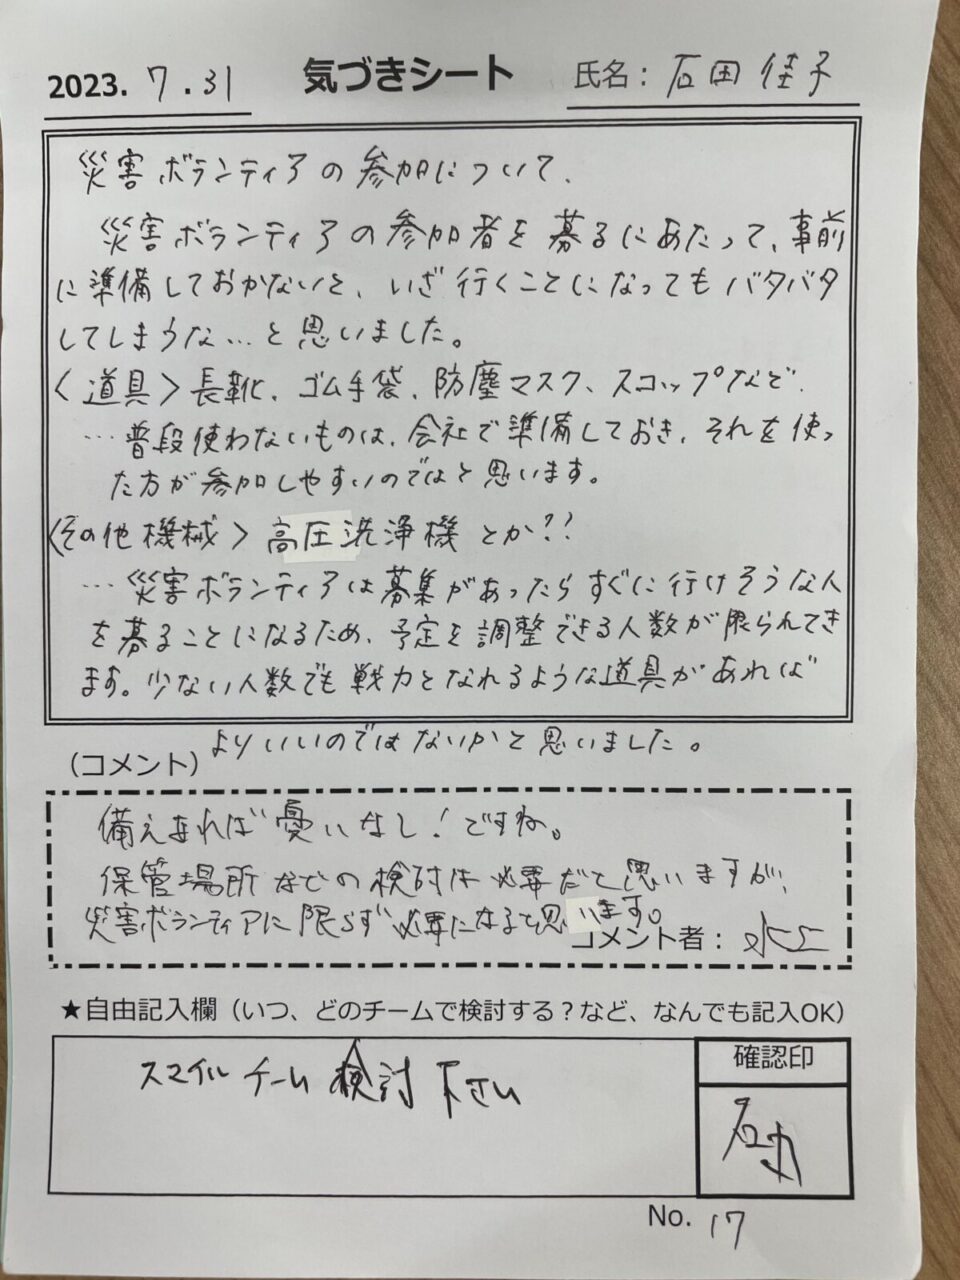 2023. 7.31 気づきシート 氏名：石田 佳子
災害ボランティアの参加について、
災害ボランティアの参加者を募るにあたって、事前
に準備しておかないと、いざ行くことになってもバタバタ
してしまうな…と思いました。
〈道具〉長靴、ゴム手袋、防塵マスク、スコップなど、
…普段使わないものは、会社で準備しておき、それを使っ
た方が参加しやすいのではと思います。
〈その他機械〉高圧洗浄機とか??
…災害ボランティアは募集があったらすぐに行けそうな人
を募ることになるため、予定を調整できる人数が限られてき
ます。少ない人数でも戦力となれるような道具があれば
よりいいのではないかと思いました。
（コメント）
備えあれば憂いなし！ですね。
保管場所などの検討は必要だと思いますが、
災害ボランティアに限らず必要になると思います。
コメント者：水上
★自由記入欄（いつ、どのチームで検討する？など、なんでも記入OK）
スマイルチーム検討下さい
確認印
No. 17